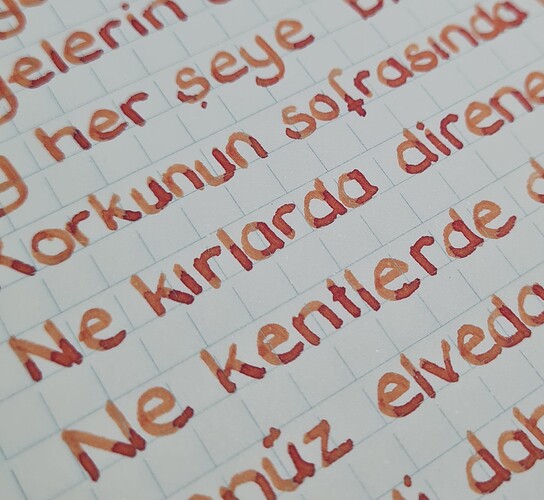 gelerin
her şeye
Korkunun sofrasında
Ne kırlarda direne
Ne kentlerde
elveda